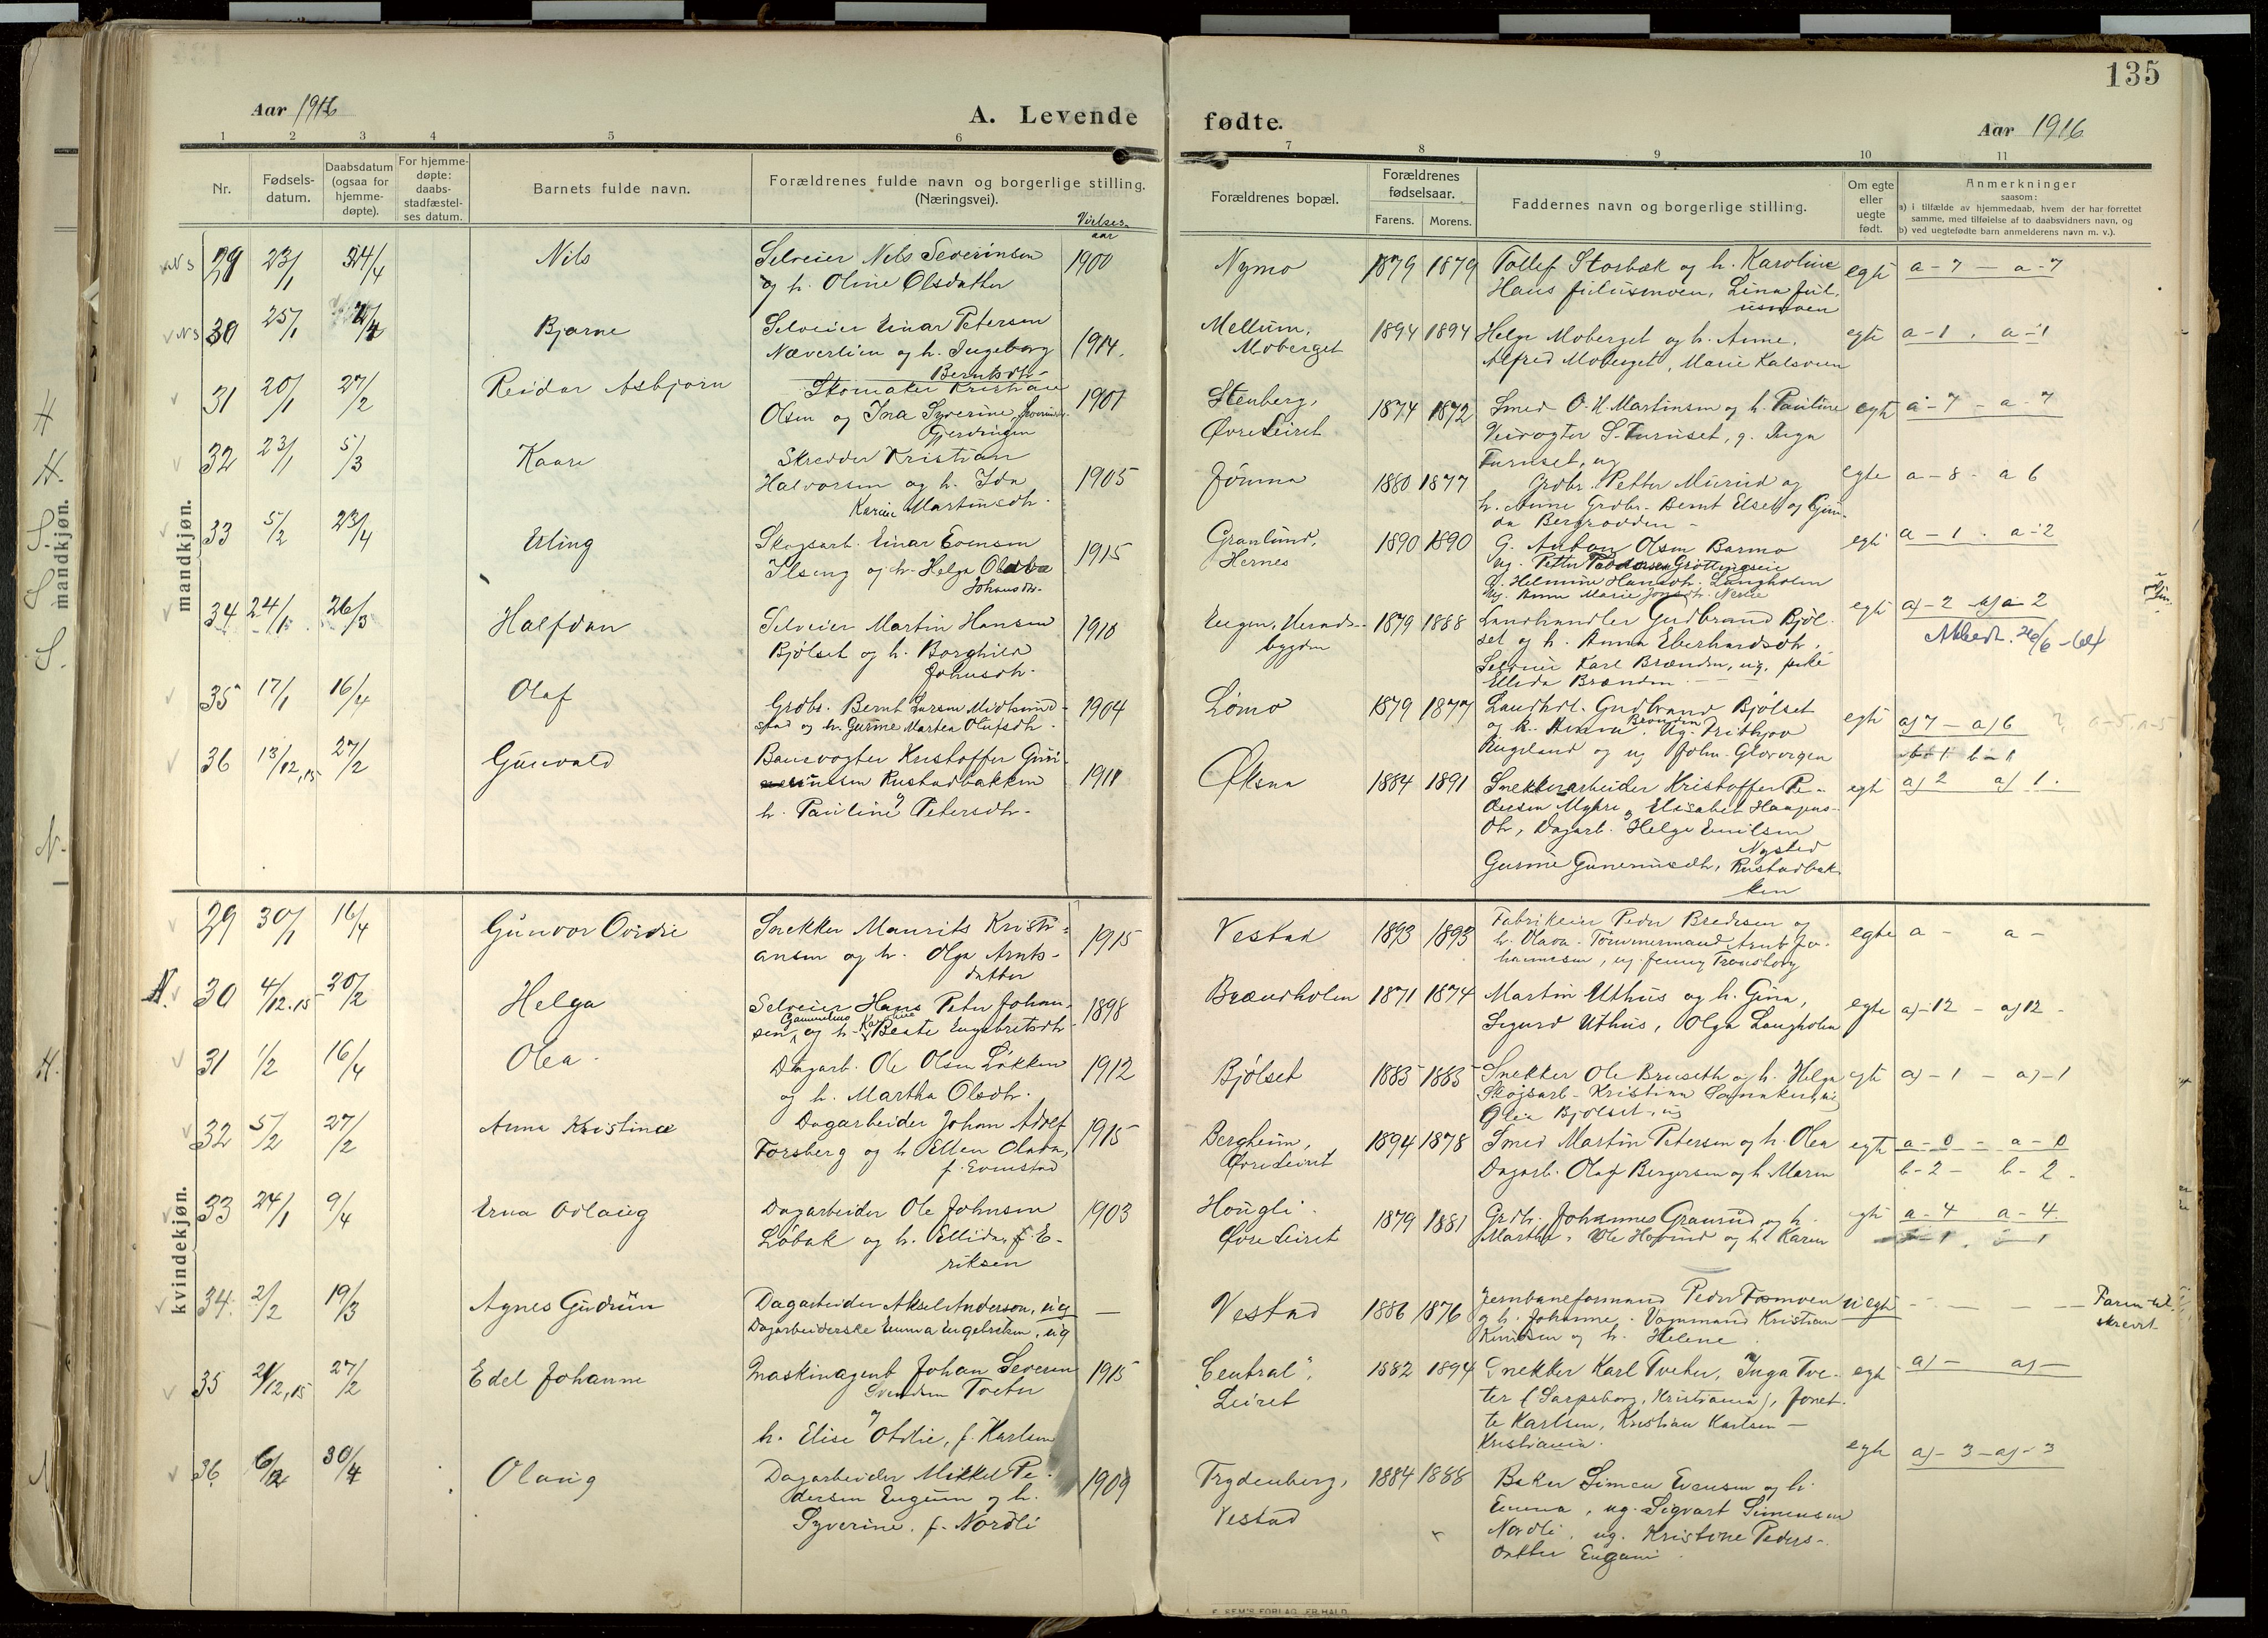 135
Aar 1916
A. Levende fødte.
Aar 1916
1 2 3 4 5 6 7 8 9 10 11
Nr.
Fødsels-
datum.
Daabsdatum
(ogsaa for
hjemme-
døpte).
For hjemme-
døpte:
daabs-
stadfæstel-
ses datum.
Barnets fulde navn.
Forældrenes fulde navn og borgerlige stilling.
(Næringsvei).
Vielses-
aar
Forældrenes bopæl.
Forældrenes
fødselsaar.
Farens. Morens.
Faddernes navn og borgerlige stilling.
Om egte
eller
uegte
født.
Anmerkninger
saasom:
a) i tilfælde av hjemmedaab, hvem der har forrettet
samme, med tilføielse af to daabsvidners navn, og
b) ved uegtefødte barn anmelderens navn m. v.).
mandkjøn.
29 23/1 24/4 Nils
Selveier Nils Severinsen
og h. Oline Olsdatter
1900
Nymo
1879 1879
Tollef Storbæk og h. Karoline
Hans Juliusmoen, Lina Jul-
iusmoen
egte
a-7 — a-7
30 25/1 Bjarne
Selveier Einar Petersen
Næverlien og h. Ingeborg
Berntsdtr-
1914.
Mellum,
Moberget
1894 1894
Helge Moberget og h. Anne,
Alfred Moberget, Marie Kalsveen
egte
a-1 . a-1
31 20/1 27/2 Reidar Asbjørn
Skomaker Kristian
Olsen og Ina Syverine
Gjerdingen
1907
Stenberg,
Øvre Leiret
1874 1872
Smed O. H. Martinsen og h. Pauline
Veivogter S. Turuset, g. Inga
Turuset, ug
egte
a-7 - a-7
32 23/1 5/3 Kaare
Skredder Kristian
Halvorsen og h. Ida
Karine Martinsdtr.
1905
Jømna
1880 1877
Grdbr. Petter Murud og
h. Anne Grdbr. Bernt Elset og Gun-
da Bergrodden -
egte
a-8 - a 6
33 5/2 23/4 Erling
Skogsarb. Einar Evensen
Ilseng og h. Helga Olava
Johansdtr.
1915
Granlund,
Hernes
1890 1890
G. Anton Olsen Barmo
ug. Petter Grøttingseie
g. Helmine Hansdtr. Langholm
ug. Anne Marie Jonsdtr.
egte
a-1 . a-2
34 24/1 26/3 Halfdan
Selveier Martin Hansen
Bjølset og h. Borghild
Johnsdtr.
1910
Eugen, Herads-
bygden
1879 1888
Landhandler Gudbrand Bjøl-
set og h. Anna Eberhardsdtr.
Selveier Karl Brænden, ug. pike
Ellida Brænden
egte
a)-2 a 2
Attest. 26/6-64
35 17/1 16/4 Olaf
Grdbr. Bernt Larsen Midtsund-
stad og h. Gurine Martea Olufsdtr.
1904
Lømo
1879 1877
Landhdl. Gudbrand Bjølset
og h. Anna. ug. Fridtjov
Rugsland og ug John Glorvigen
egte
a)7 - a)6
b-1 b-1
36 13/12,15 27/2 Gunvald
Banevogter Kristoffer Gun-
Rustadbakken
og
h. Pauline Petersdtr.
1911
Øksna
1884 1891
Snekkerarbeider Kristoffer Pe-
dersen Myhre, Elisabet Haagens-
dtr, Dagarb. Helge Emilsen
Nysted
Gurine Guneriusdtr, Rustadbak-
ken
egte
a) 2 a) 1.
kvindekjøn.
29 30/1 16/4 Gunvor Ovidie
Snekker Maurits Kristi-
ansen og h. Olga Arnts-
datter
1915
Vestad
1893 1893
Fabrikeier Peder Bredesen og
h. Olava. Tømmermand Arnt Jo-
hannesen, ug. Jenny Transborg
egte
a - a -
N. 30 4/12.15 30/2 Helga
Selveier Hans Peter Johan-
sen Gammelmo og h. Karoline Beate Engebretsdtr
1898
Brændholen
1871 1874
Martin Uthus og h. Gina,
Sigurd Uthus, Olga Langholen
egte
a)-12 - a)12 -
31 1/2 16/4 Olea
Dagarb. Ole Olsen Løkken
og h. Martha Olsdtr.
1912
Bjølset
1885 1885
Snekker Ole Bruseth og h. Helga
Skogsarb- Kristian Samaker, ug
Olea Bjølset, ug
egte
a)-1 - a)-1
32 5/2 27/2 Anna Kristine
Dagarbeider Johan Adolf
Forsberg og h Ellen Olava,
f. Evenstad
1915
Bergheim,
Øvre Leiret
1894 1878
Smed Martin Petersen og h. Olea
Dagarb. Olaf Bergersen og h Maren
egte
a-0 - a-0
b-2- b-2.
33 24/1 9/4 Erna Odlaug
Dagarbeider Ole Johnsen
Løbak og h. Ellida, f. E-
riksen
1903
Hougli
Øvre Leiret
1879 1881
Grdbr. Johannes Graurud og h.
Martha. Ole Hovind og h. Karen
egte
a-4 a-4.
34. 2/2 19/3 Agnes Gudrun
Dagarbeider Aksel Anderson, ug
Dagarbeiderske Emma Engebretsen, ug
—
Vestad
1886 1876
Jernbaneformand Peder Fosmoen
og h. Johanne. Vognmand Kristian
Knudsen og h. Helene
uegte
Faren til-
skrevet
35 21/12,15 27/2 Edel Johanne
Maskinagent Johan Severin
Svendsen Tveter
og
h. Elise Otilie, f. Karlsen
1915
"Central",
Leiret
1882 1894
Snekker Karl Tveter, Inga Tve-
ter (Sarpsborg, Kristiania), Jonet-
te Karlsen, Kristian Karlsen -
Kristiania.
egte
a) - a) -
36 6/2 30/4 Olaug
Dagarbeider Mikkel Pe-
dersen Engum og h.
Syverine, f. Nordli
1909
Trydenberg,
Vestad
1884 1888
Baker Simen Evensen og h.
Emma, ug. Sigvart Simensen
Nordli, ug. Kristine Peders-
datter Engam
egte
a)-3-a)-3